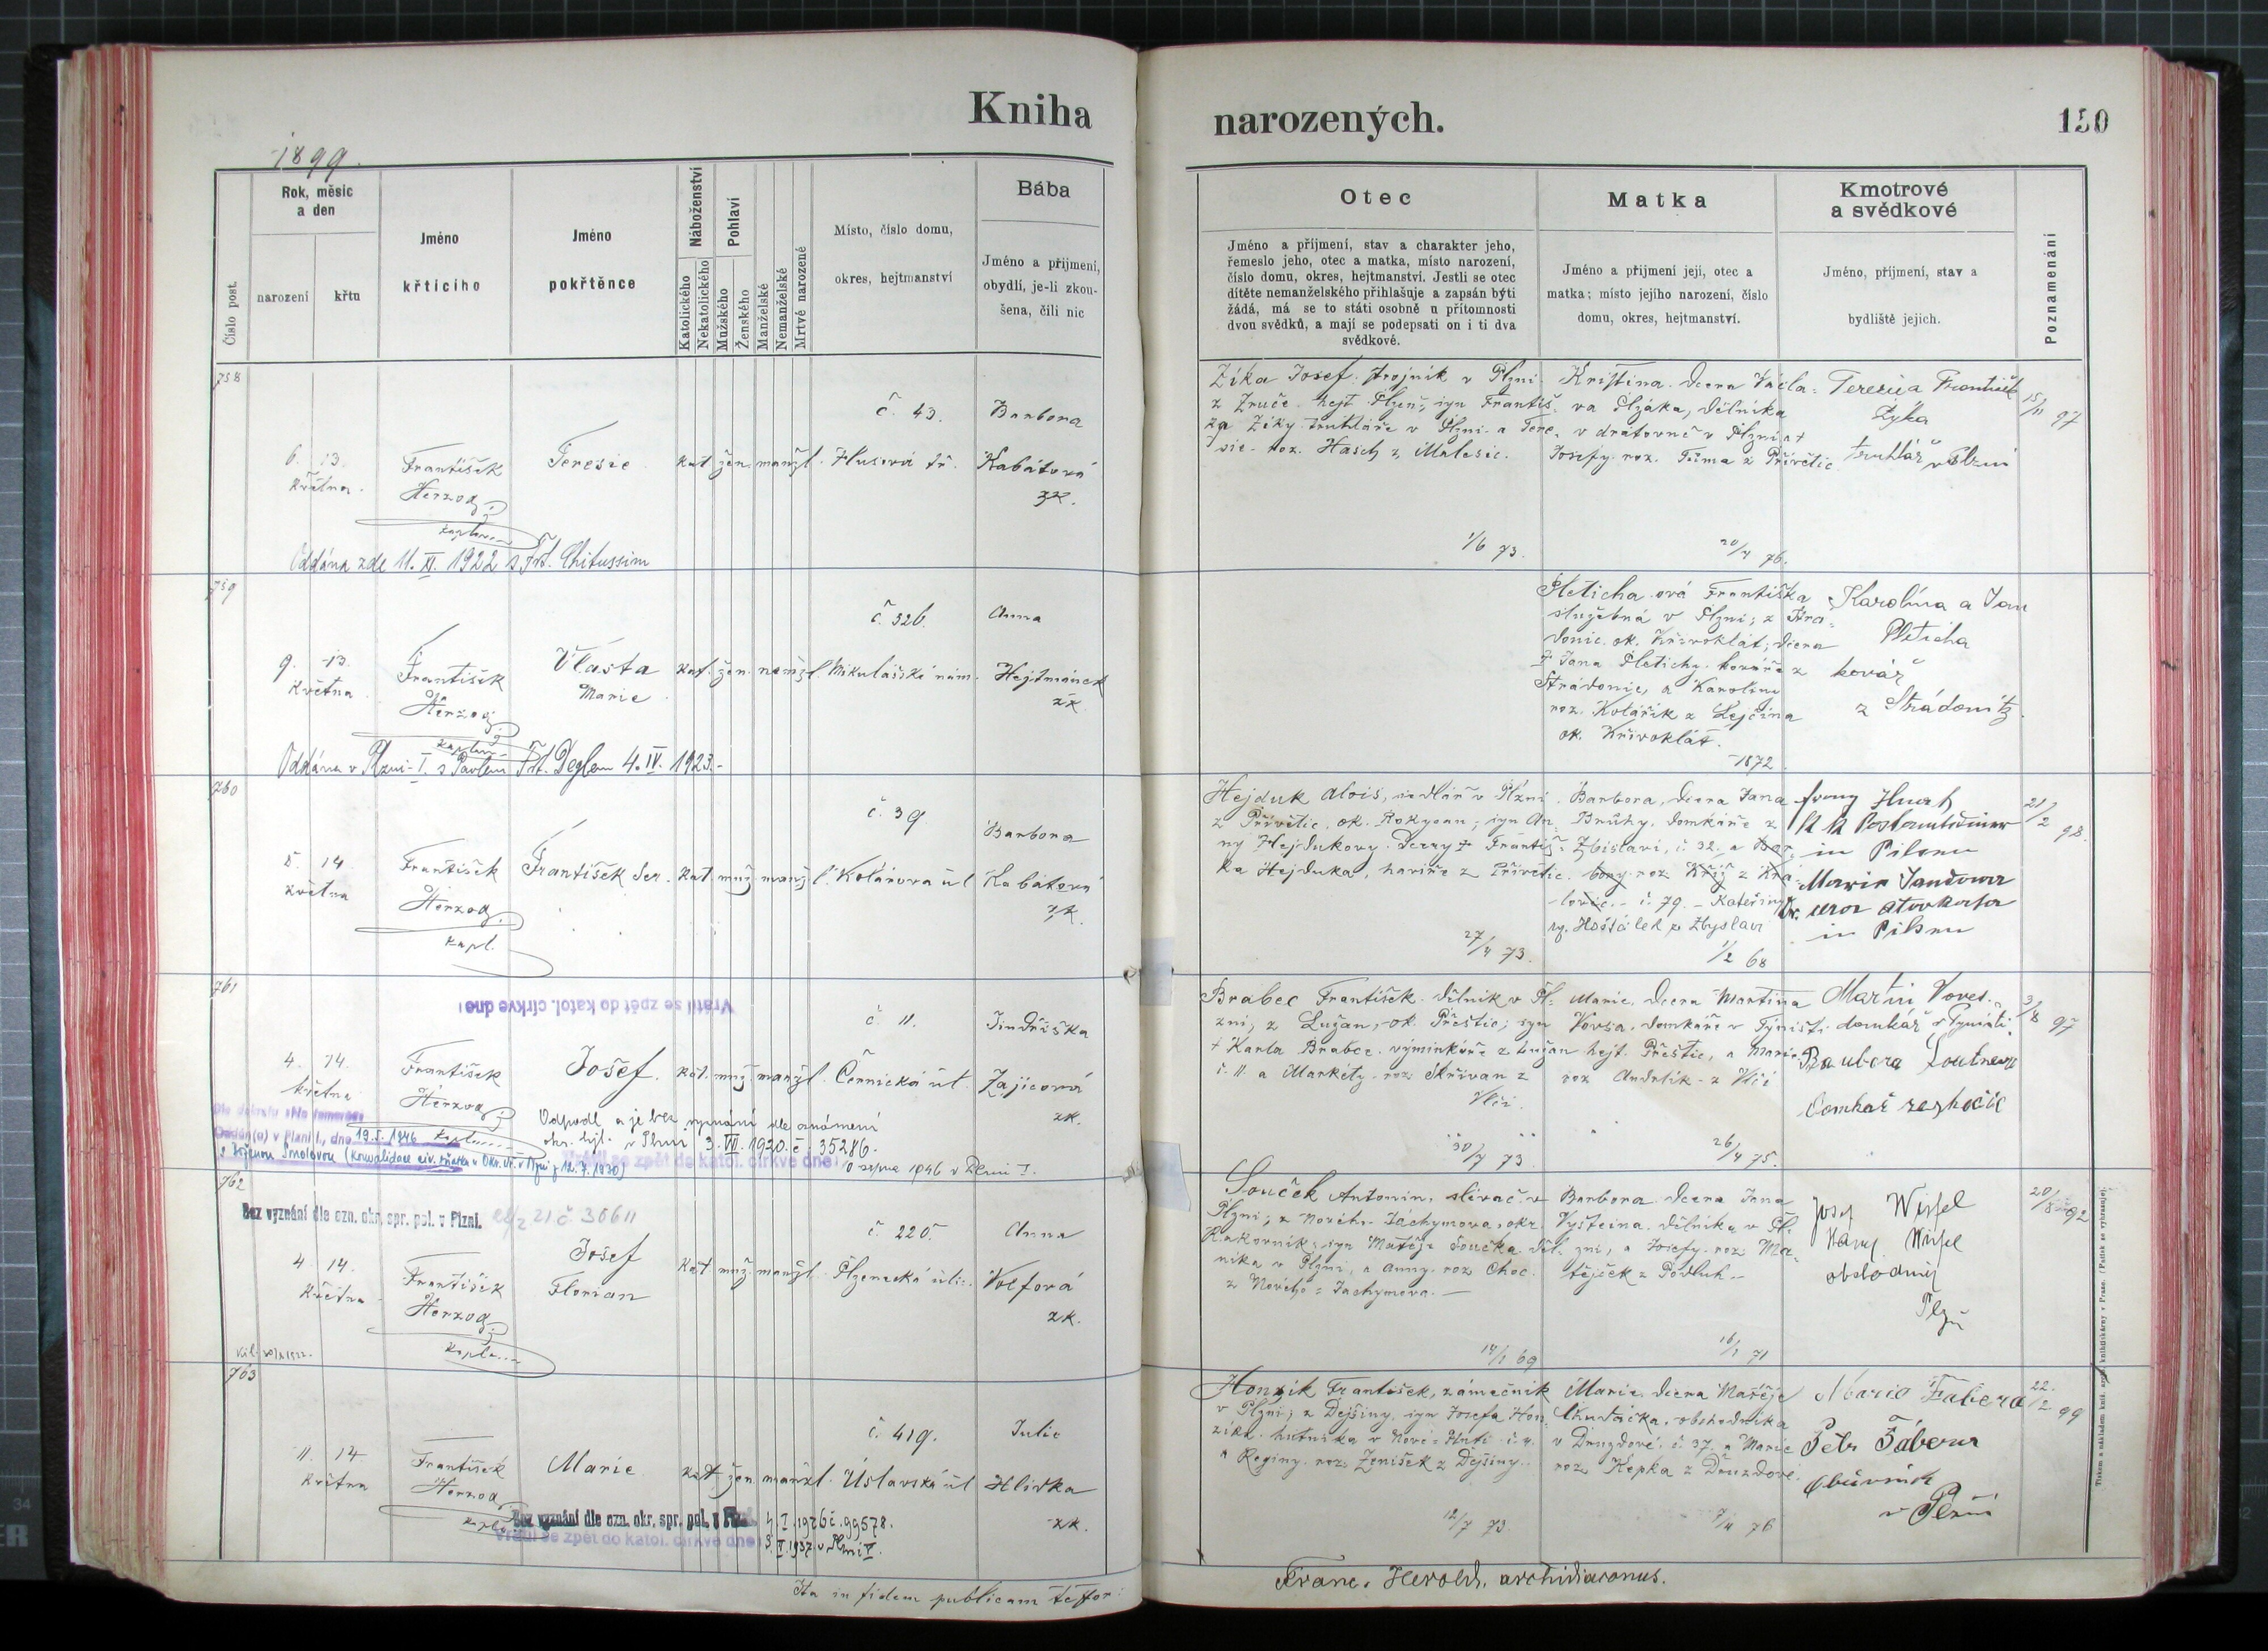 Kniha
narozených.
150
1899.
Číslo post.
Rok, měsíc
a den
narození
křtu
Jméno
křticího
Jméno
pokřtěnce
Náboženství
Katolického
Nekatolického
Pohlaví
Mužského
Ženského
Manželské
Nemanželské
Mrtvě narozené
Místo, číslo domu,
okres, hejtmanství
Bába
Jméno a přijmení,
obydlí, je-li zkou-
šena, čili nic
Otec
Jméno a příjmení, stav a charakter jeho,
řemeslo jeho, otec a matka, místo narození,
číslo domu, okres, hejtmanství. Jestli se otec
dítěte nemanželského přihlašuje a zapsán býti
žádá, má se to státi osobně u přítomnosti
dvou svědků, a mají se podepsati on i ti dva
svědkové.
Matka
Jméno a příjmení její, otec a
matka; místo jejího narození, číslo
domu, okres, hejtmanství.
Kmotrové
a svědkové
Jméno, příjmení, stav a
bydliště jejich.
Poznamenání
758
6. 13.
května.
František
Herzog
kaplan
Teresie
kat žen. manžl.
č. 43.
Husova tř.
Barbora
Kabátová
zk.
Oddána zde 11. XI. 1922 s Frt. Chitussim
Zíka Josef. strojník v Plzni
z Zruče hejt Plzeň, syn Františ-
ka Zíky truhláře v Plzni a Tere-
sie roz. Hasch z Malesic.
1/6 73.
Kristina. dcera Václa-
va Plzáka, dělníka
v drátovně v Plzni a +
Josefy roz. Tůma z Přívětic
20/4 76.
Terezie František
Zýka
truhlář v Plzni
15/11 97
759
9. 13.
května
František
Herzog
kaplan
Vlasta
Marie
kat. žen. nemžl.
č. 326.
Mikulášské nám.
Anna
Hejtmánek
zk.
Oddána v Plzni-I. s Pavlem Frt. Deglem 4. IV. 1923.-
Pleticha ová Františka
služebná v Plzni; z Stra-
donic. ok. Křivoklát; dcera
+ Jana Pletichy. kováře z
Stradonic, a Karoliny
roz. Kolářík z Lejčína
ok. Křivoklát.
1872.
Karolína a Jan
Pleticha
kovář
z Strádonitz.
760
5. 14
května
František
Herzog
kapl.
František Ser.
kat muž. manžl.
č. 39
Kolárova ul
Barbora
Kabátová
zk.
Hejduk Alois, sedlář v Plzni
z Přívětic, ok. Rokycan; syn An-
ny Hejdukovy. Dcery + Františ-
ka Hejduka, havíře z Přívětic.
27/4 73.
Barbora, dcera Jana
Brůhy. domkáře z
Zbislavi, č 32. a Bar-
bory roz Kříž z Kra-
lovic.- č. 79. - Kateřiny
roz. Hošťálek z Zbyslavi
1/2 68
k k Postamtsdiener
in Pilsen
Marie Jandowa
in Pilsen
21/2 98.
761
Vrátil se zpět do katol. církve dne:
4. 14.
května
František
Herzog
kaplan
Josef.
kat. muž. manžl.
č. 11.
Černická ul.
Jindřiška
Zajícová
zk.
Odpadl a je bez vyznání dle oznámení
okr. hejt. v Plzni 3. VII. 1920. č. 35286.
Vrátil se zpět do katol. církve dne:
10 srpna 1946 v Plzni I.
Oddán(a) v Plzni I., dne 19.5. 1946
Brabec František. dělník v Pl-
zni; z Lužan, ok. Přeštic; syn
+ Karla Brabce. výminkáře z Lužan
č. 11 a Markéty roz Skřivan z
Vlčí.
30/7 73
Marie. dcera Martina
Vovsa. domkáře v Týništi
hejt. Přeštic, a Marie
roz Andrlík z Vlčí
26/4 75.
Martin Voves.
domkář v Tyništi
3/8 97
762
Bez vyznání dle ozn. okr. spr. pol. v Plzni. 22/2 21 č. 30611
4. 14.
května
František
Herzog
kaplan
Josef
Florian
kat muž. manžl.
č. 220.
Plzenecká ulic.
Anna
Volfová
zk.
Souček Antonín, slívač v
Plzni; z Nového Jáchymova, okr.
Rakovník; syn Matěje Součka. děl-
níka v Plzni, a Anny roz Choc.
z Nového Jachymova.
14/1 69
Barbora. dcera Jana
Vyšteina. dělníka v Pl-
zni, a Josefy roz Ma-
tějíček z Podluh.-
16/1 71
Josef Wissel
obchodník
Plzň
20/8 92
763
11. 14
května
František
Herzog
kaplan
Marie
kat žen manžl.
č. 419.
Úslavská ul
Julie
Hlivka
zk.
Bez vyznání dle ozn. okr. spr. pol. v Plzni 4. I. 1926 č. 99578.
Vrátil se zpět do katol. církve dne: 5. V. 1937. v Plzni V.
Honzík František, zámečník
v Plzni; z Dejšiny. syn Josefa Hon-
zíka. hutníka v Nové Huti č. 4.
a Reginy roz. Ženíšek z Dejšiny.
12/7 73
Marie. dcera Matěje
Chudáčka. obchodníka
v Druzdové. č. 37. a Marie
roz Kepka z Druzdové.
7/4 76
Marie Fabera
Petr Fábera
obuvník
v Plzni
22/2 99
Ita in fidem publicam testor:
Franc. Herold, archidiaconus.